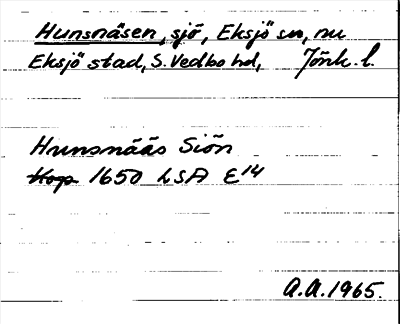 Hunsnäsen, sjö, Eksjö sn, nu
Eksjö stad, S. Vedbo hd, Jönk. l.
Hunsnääs Siön
Kop 1650 LSA E14
A.A. 1965.